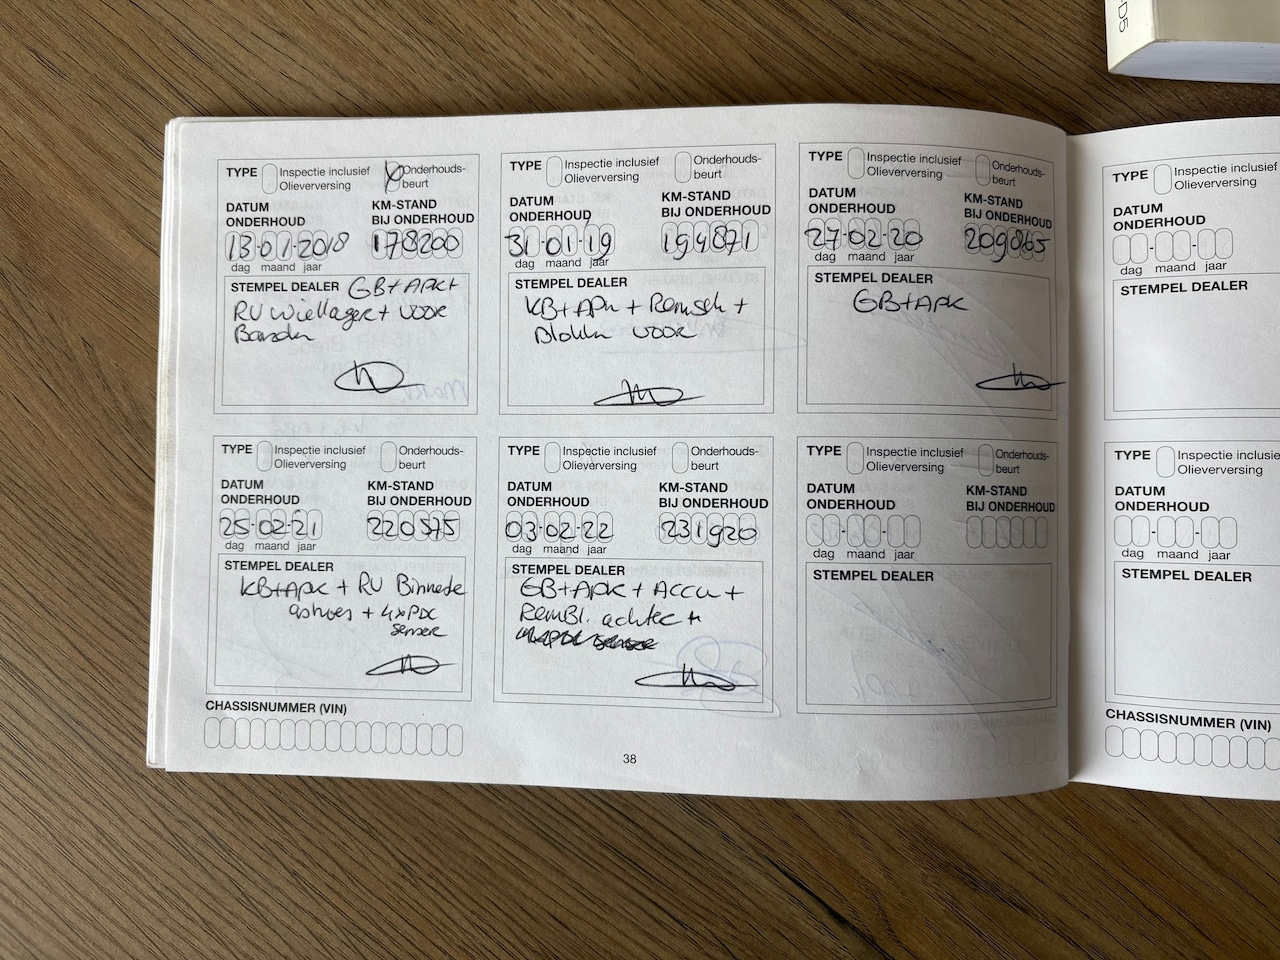 D5
TYPE Inspectie inclusief Olieverversing Onderhouds-beurt
DATUM ONDERHOUD KM-STAND BIJ ONDERHOUD
13-01-2018 178200
dag maand jaar
STEMPEL DEALER GB+APK+
RV wiellager + voor
TYPE Inspectie inclusief Olieverversing Onderhouds-beurt
DATUM ONDERHOUD KM-STAND BIJ ONDERHOUD
31-01-19 194871
dag maand jaar
STEMPEL DEALER
KB+APK + Remsch +
Blokken voor
TYPE Inspectie inclusief Olieverversing Onderhouds-beurt
DATUM ONDERHOUD KM-STAND BIJ ONDERHOUD
27-02-20 209865
dag maand jaar
STEMPEL DEALER
GB+APK
TYPE Inspectie inclusief Olieverversing Onderhouds-beurt
DATUM ONDERHOUD KM-STAND BIJ ONDERHOUD
25-02-21 220575
dag maand jaar
STEMPEL DEALER
KB+APK + RV Binnenste
ashoes + 4xPDC
sensor
TYPE Inspectie inclusief Olieverversing Onderhouds-beurt
DATUM ONDERHOUD KM-STAND BIJ ONDERHOUD
03-02-22 231920
dag maand jaar
STEMPEL DEALER
GB+APK + ACCU +
RemBl. achter +
TYPE Inspectie inclusief Olieverversing Onderhouds-beurt
DATUM ONDERHOUD KM-STAND BIJ ONDERHOUD
dag maand jaar
STEMPEL DEALER
CHASSISNUMMER (VIN)
38
TYPE Inspectie inclusief Olieverversing
DATUM ONDERHOUD
dag maand jaar
STEMPEL DEALER
TYPE Inspectie inclusief Olieverversing
DATUM ONDERHOUD
dag maand jaar
STEMPEL DEALER
CHASSISNUMMER (VIN)